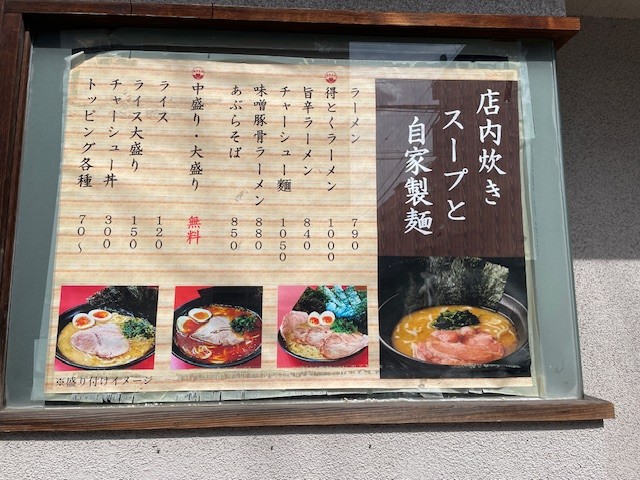 店内炊き
スープと
自家製麺
ラーメン 790
得とくラーメン 1000
旨辛ラーメン 840
チャーシュー麺 1050
味噌豚骨ラーメン 880
あぶらそば 850
中盛り・大盛り 無料
ライス 120
ライス大盛り 150
チャーシュー丼 300
トッピング各種 70~
※盛り付けイメージ